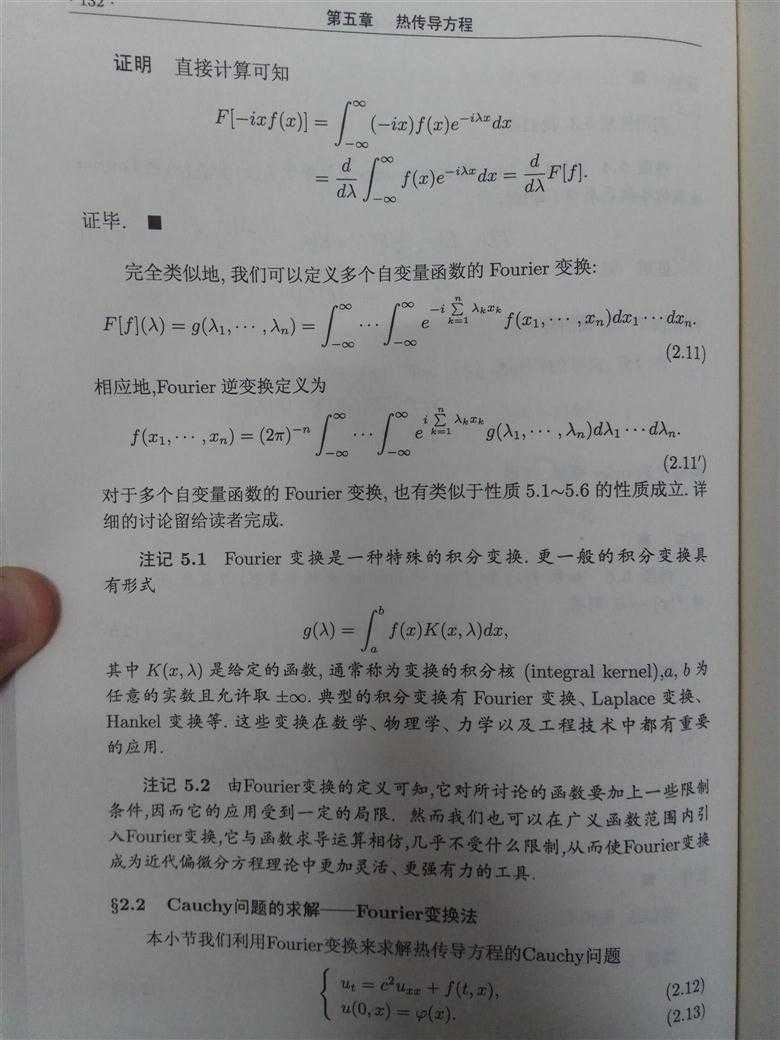 · 132 ·
第五章 热传导方程
证明 直接计算可知
F[-ixf(x)] = ∫_{-∞}^{∞} (-ix)f(x)e^{-iλx}dx
= d/dλ ∫_{-∞}^{∞} f(x)e^{-iλx}dx = d/dλ F[f].
证毕. ■
完全类似地, 我们可以定义多个自变量函数的 Fourier 变换:
F[f](λ) = g(λ₁, ⋯ , λₙ) = ∫_{-∞}^{∞} ⋯ ∫_{-∞}^{∞} e^{-i∑_{k=1}^{n} λ_k x_k} f(x₁, ⋯ , xₙ)dx₁ ⋯ dxₙ.
(2.11)
相应地,Fourier 逆变换定义为
f(x₁, ⋯ , xₙ) = (2π)^{-n} ∫_{-∞}^{∞} ⋯ ∫_{-∞}^{∞} e^{i∑_{k=1}^{n} λ_k x_k} g(λ₁, ⋯ , λₙ)dλ₁ ⋯ dλₙ.
(2.11′)
对于多个自变量函数的 Fourier 变换, 也有类似于性质 5.1~5.6 的性质成立. 详
细的讨论留给读者完成.
注记 5.1 Fourier 变换是一种特殊的积分变换. 更一般的积分变换具
有形式
g(λ) = ∫_{a}^{b} f(x)K(x, λ)dx,
其中 K(x, λ) 是给定的函数, 通常称为变换的积分核 (integral kernel),a, b 为
任意的实数且允许取 ±∞. 典型的积分变换有 Fourier 变换、Laplace 变换、
Hankel 变换等. 这些变换在数学、物理学、力学以及工程技术中都有重要
的应用.
注记 5.2 由Fourier变换的定义可知,它对所讨论的函数要加上一些限制
条件,因而它的应用受到一定的局限. 然而我们也可以在广义函数范围内引
入Fourier变换,它与函数求导运算相仿,几乎不受什么限制,从而使Fourier变换
成为近代偏微分方程理论中更加灵活、更强有力的工具.
§2.2 Cauchy问题的求解——Fourier变换法
本小节我们利用Fourier变换来求解热传导方程的Cauchy问题
{ u_t = c²u_{xx} + f(t, x), (2.12)
u(0, x) = φ(x). (2.13)